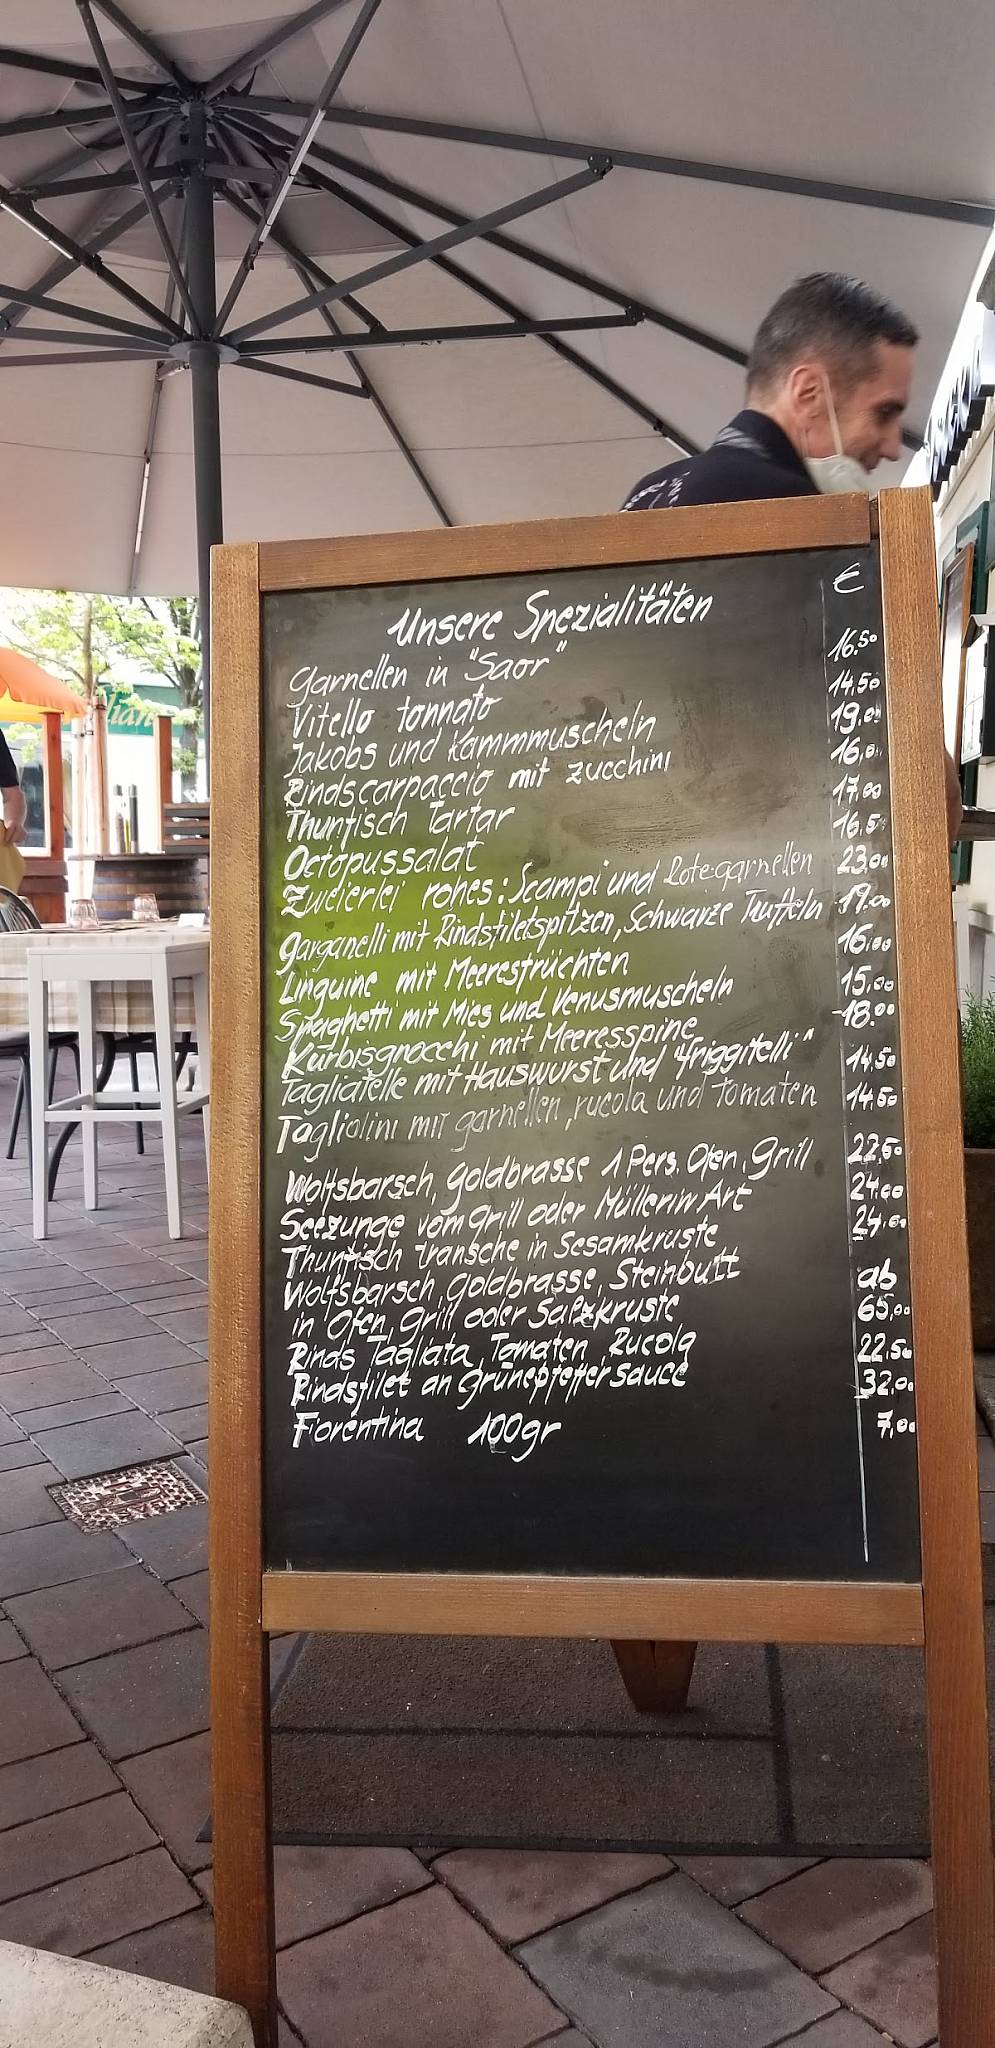 €
Unsere Spezialitäten
Garnellen in "Saor" 16.50
Vitello tonnato 14.50
Jakobs und Kammmuscheln 19.00
Rindscarpaccio mit zucchini 16,0
Thunfisch Tartar 17.00
Octopussalat 16,50
Zweierlei rohes: Scampi und Rotegarnellen 23,00
Garganelli mit Rindsfiletspitzen, Schwarze Truffeln 19.00
Linguine mit Meeresfrüchten 16,00
Spaghetti mit Mies und Venusmuscheln 15,00
Kürbisgnocchi mit Meeresspine 18.00
Tagliatelle mit Hauswurst und "friggitelli" 14,50
Tagliolini mit garnellen, rucola und tomaten 14,50
Wolfsbarsch, Goldbrasse 1 Pers. Ofen, Grill 22,50
Seezunge vom Grill oder Müllerin Art 24,00
Thunfisch transche in Sesamkruste 24,00
Wolfsbarsch, Goldbrasse, Steinbutt ab
in Ofen, Grill oder Salzkruste 65,00
Rinds Tagliata, Tomaten, Rucola 22,50
Rindsfilet an Grünepfeffersauce 32,0
Fiorentina 100gr 7,00